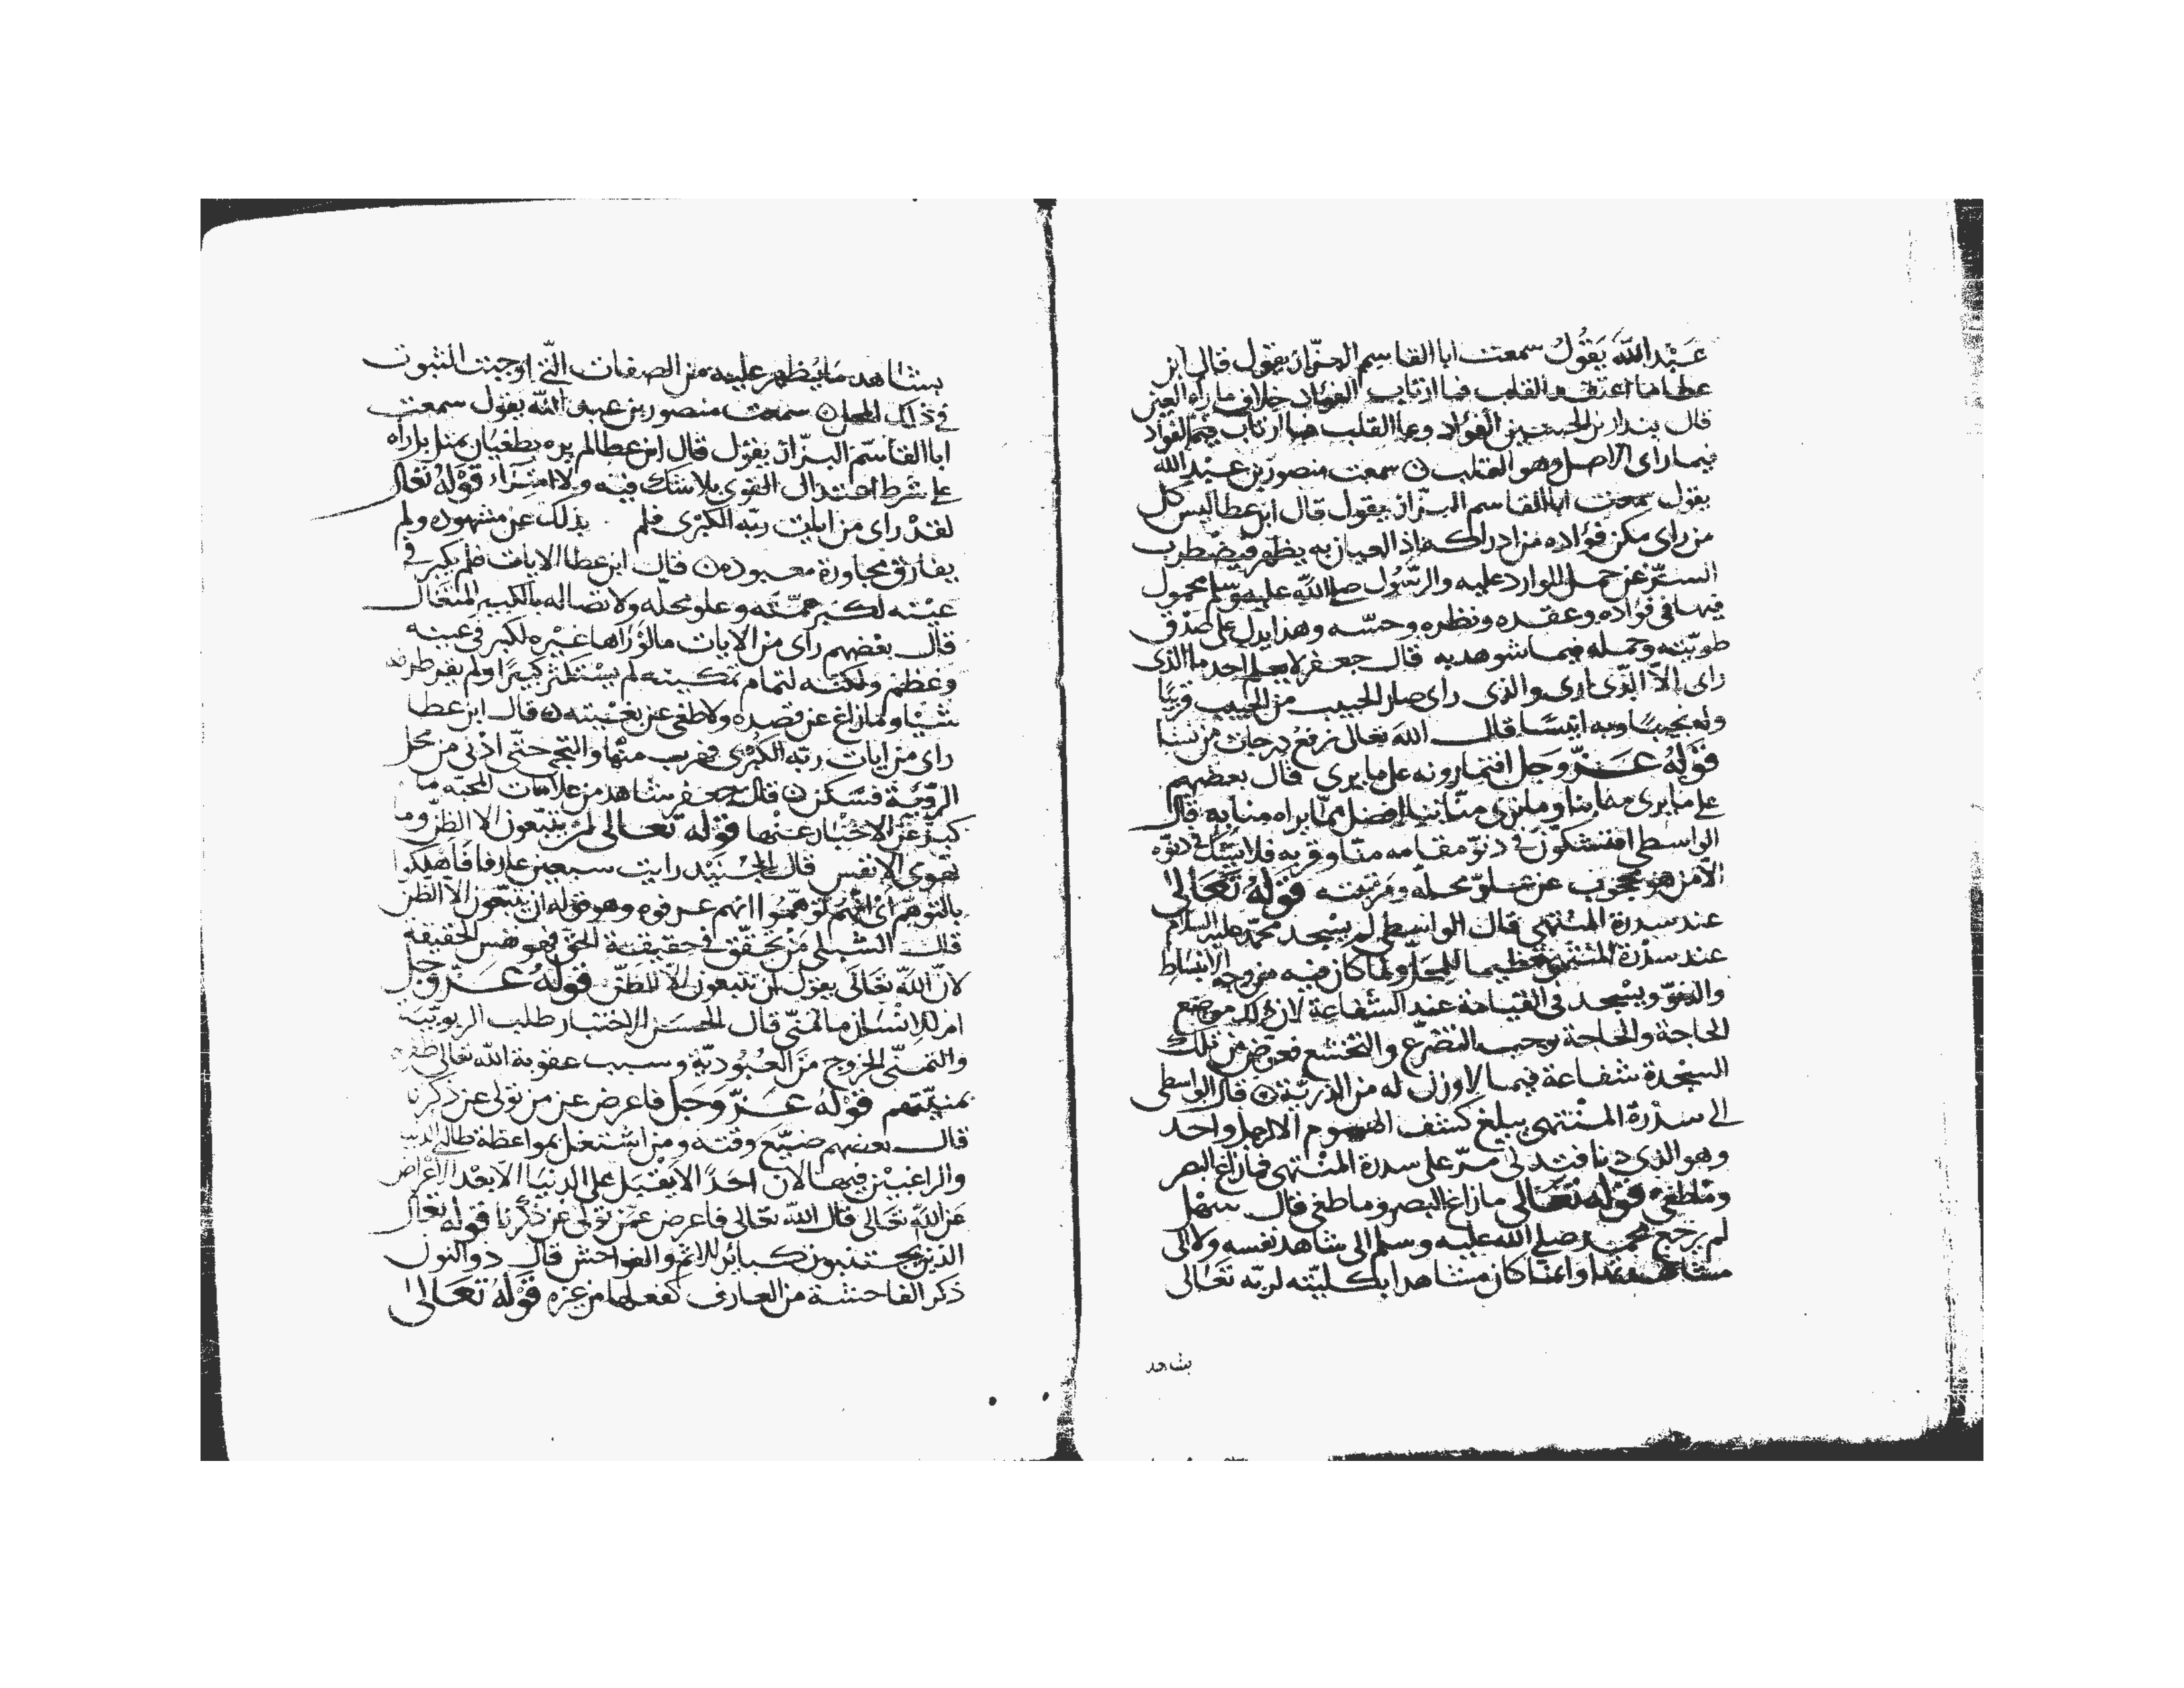 عبد الله يقول سمعت ابا القاسم البزاز يقول قال ابن
عطا ما اعتقد القلب فيما ارتاب الفؤاد خلاف ما راه العين
قال بندار بن الحسين الفؤاد وعا القلب فيما ارتاب فيه الفؤاد
فيما راى الاصل وهو القلب ن سمعت منصور بن عبد الله
يقول سمعت ابا القاسم البزاز يقول قال ابن عطا ليس كل
من راى مكن فؤاده من ادراكه اذ العيان به يظهر فيضطرب
السر عن حمل الوارد عليه والرسول صلى الله عليه وسلم محمول
فيها في فؤاده وعقده ونظره وحسه وهذا يدل على صدق
طويته وحمله فيما شوهد به قال جعفر لا يعلم احد ما الذى
راى الا الذى ارى والذى راى صار الحبيب من الحبيب قريبا
وله نجيبا وبه انيسا قال الله تعالى نرفع درجات من نشا
قوله عز وجل افتمارونه على ما يرى قال بعضهم
على ما يرى منا بنا وما يرى منا بنا افضل مما يراه منا به قال
الواسطى افتشكون فى دنو مقامه منا وقربه فلا يشك فى دنوه
الا من هو محجوب عن علو محله ومرتبته قوله تعالى
عند سدرة المنتهى قال الواسطى لم يسجد محمد عليه السلام
عند سدرة المنتهى تعظيما للمحل ولما كان فيه من وجه الانبساط
والدنو ويسجد فى القيامة عند الشفاعة لان ذلك موضع
الحاجة والحاجة توجب التضرع والتخشع فعوض من تلك
السجدة شفاعة فيما لاوزن له من الذرية ن قال الواسطى
الى سدرة المنتهى يبلغ كشف الهموم الا رجل واحد
وهو الذي دنا فتدلى مر على سدرة المنتهى فما زاغ البصر
وما طغى قوله تعالى ما زاغ البصر وما طغى قال سهل
لم يرجع محمد صلى الله عليه وسلم الى شاهد نفسه ولا الى
مشاهدتها وانما كان مشاهدا بكليته لربه تعالى
بشاهد
يشاهد ما يظهر عليه من الصفات التى اوجبت الثبوت
فى ذلك المحل ن سمعت منصور بن عبد الله يقول سمعت
ابا القاسم البزاز يقول قال ابن عطا لم يره بطغيان بميل بل راه
على شرط اعتدال القوى بلا شك فيه ولا امتراء قوله تعالى
لقد راى من ايات ربه الكبرى فلم يذلك عن مشهوده ولم
يفارق مجاورة معبوده ن قال ابن عطا الايات فلم يكبر فى
عينه لكبر همته وعلو محله ولاتصاله بالكبير المتعال
قال بعضهم راى من الايات ما لو راها غيره لكبر فى عينه
وعظم ولكنه لتمام تمكينه لم يستكثر كبيرا ولم يغر طرفه
شيئا وما زاغ عن قصده ولا طغى عن بغيته ن قال ابن عطا
راى من ايات ربه الكبرى فهرب منها والتجى حتى ادنى من محل
الروية فسكن ن قال جعفر شاهد من علامات المحبة ما
كبر عن الاخبار عنها قوله تعالى ان يتبعون الا الظن وما
تهوى الانفس قال الجنيد رايت سبعين عارفا قد هلكوا
بالتوهم اى انهم توهموا انهم عرفوه وهو قوله ان يتبعون الا الظن
قال الشبلى من تحقق فى حقيقة الحق فهو نفس الحقيقة
لان الله تعالى يقول ان يتبعون الا الظن قوله عز وجل
ام للانسان ما تمنى قال الحسن الاختيار طلب الربوبية
والتمنى الخروج من العبودية وسبب عقوبة الله تعالى ظفره
بمنيتهم قوله عز وجل فاعرض عن من تولى عن ذكرنا
قال بعضهم ضيع وقته من اشتغل بمواعظة طالبى الدنيا
والراغبين فيها لان احدا لا يقبل على الدنيا الا بعد الاعراض
عن الله تعالى قال الله تعالى فاعرض عمن تولى عن ذكرنا قوله تعالى
الذين يجتنبون كبائر الاثم والفواحش قال ذو النون
ذكر الفاحشة من العارف كفعلها من غيره قوله تعالى